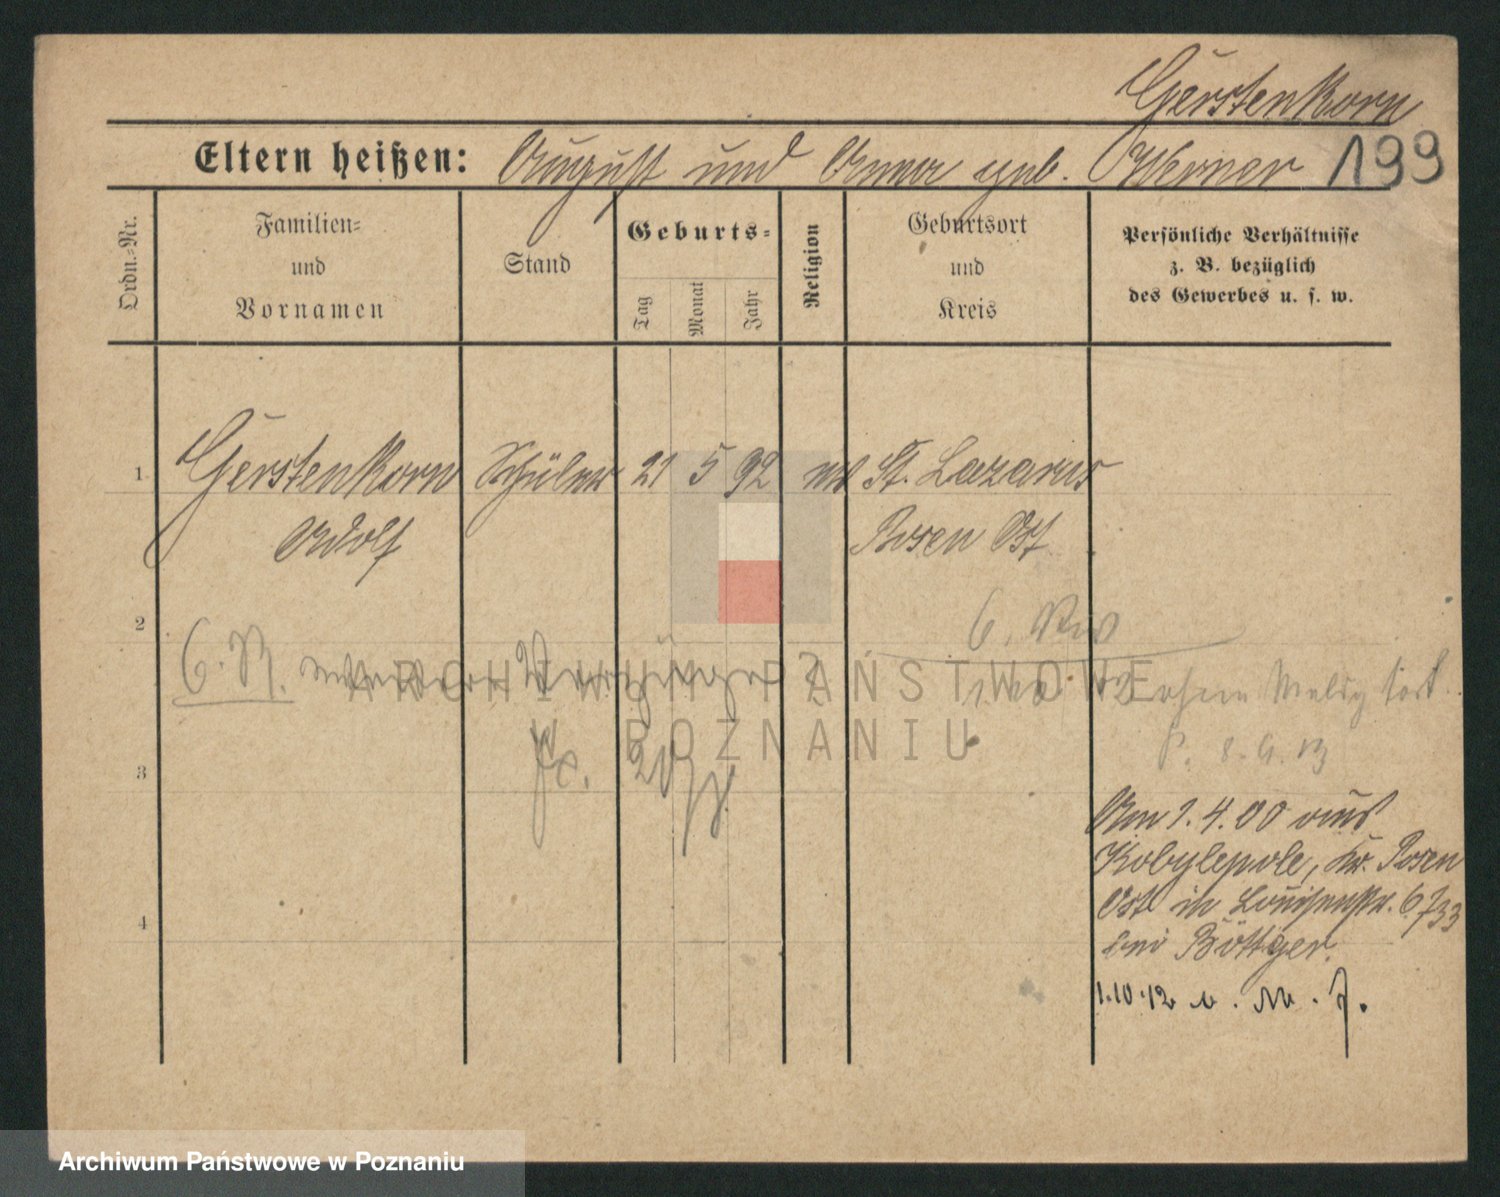 Gerstenkorn
Eltern heißen: August und Anna geb. Werner 199
Ordn.-Nr.
Familien-
und
Vornamen
Stand
Geburts-
Tag
Monat
Jahr
Religion
Geburtsort
und
Kreis
Persönliche Verhältnisse
z. B. bezüglich
des Gewerbes u. s. w.
1 Gerstenkorn Schüler 21 5 92 ev St. Lazarus
Adolf Posen Ost
2
ohne Meldg fort
ARCHIWUM PAŃSTWOWE
W POZNANIU
3
8.9.13
Am 1.4.00 aus
Kobylepole, Kr. Posen
Ost in Louisenstr.
4
bei Böttger.
1.10.12
Archiwum Państwowe w Poznaniu